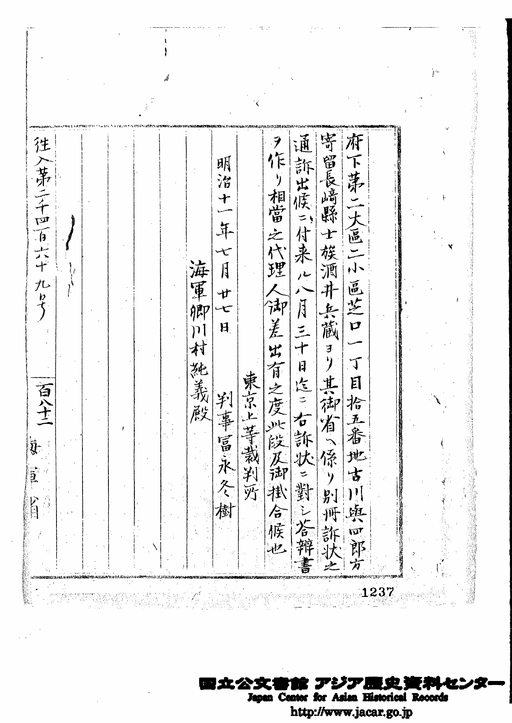 府下第二大區二小區芝口一丁目拾五番地古川與四郎方
寄留長﨑縣士族酒井兵蔵ヨリ其御省ヘ係リ別冊訴状之
通訴出候ニ付来ル八月三十日迄ニ右訴状ニ對シ答辯書
ヲ作リ相當之代理人御差出有之度此段及御掛合候也
東京上等裁判所
明治十一年七月廿七日 判事冨永冬樹
海軍卿川村純義殿
往入第二千四百六十九号
百八十二
海軍省
1237
国立公文書館 アジア歴史資料センター
Japan Center for Asian Historical Records
http://www.jacar.go.jp